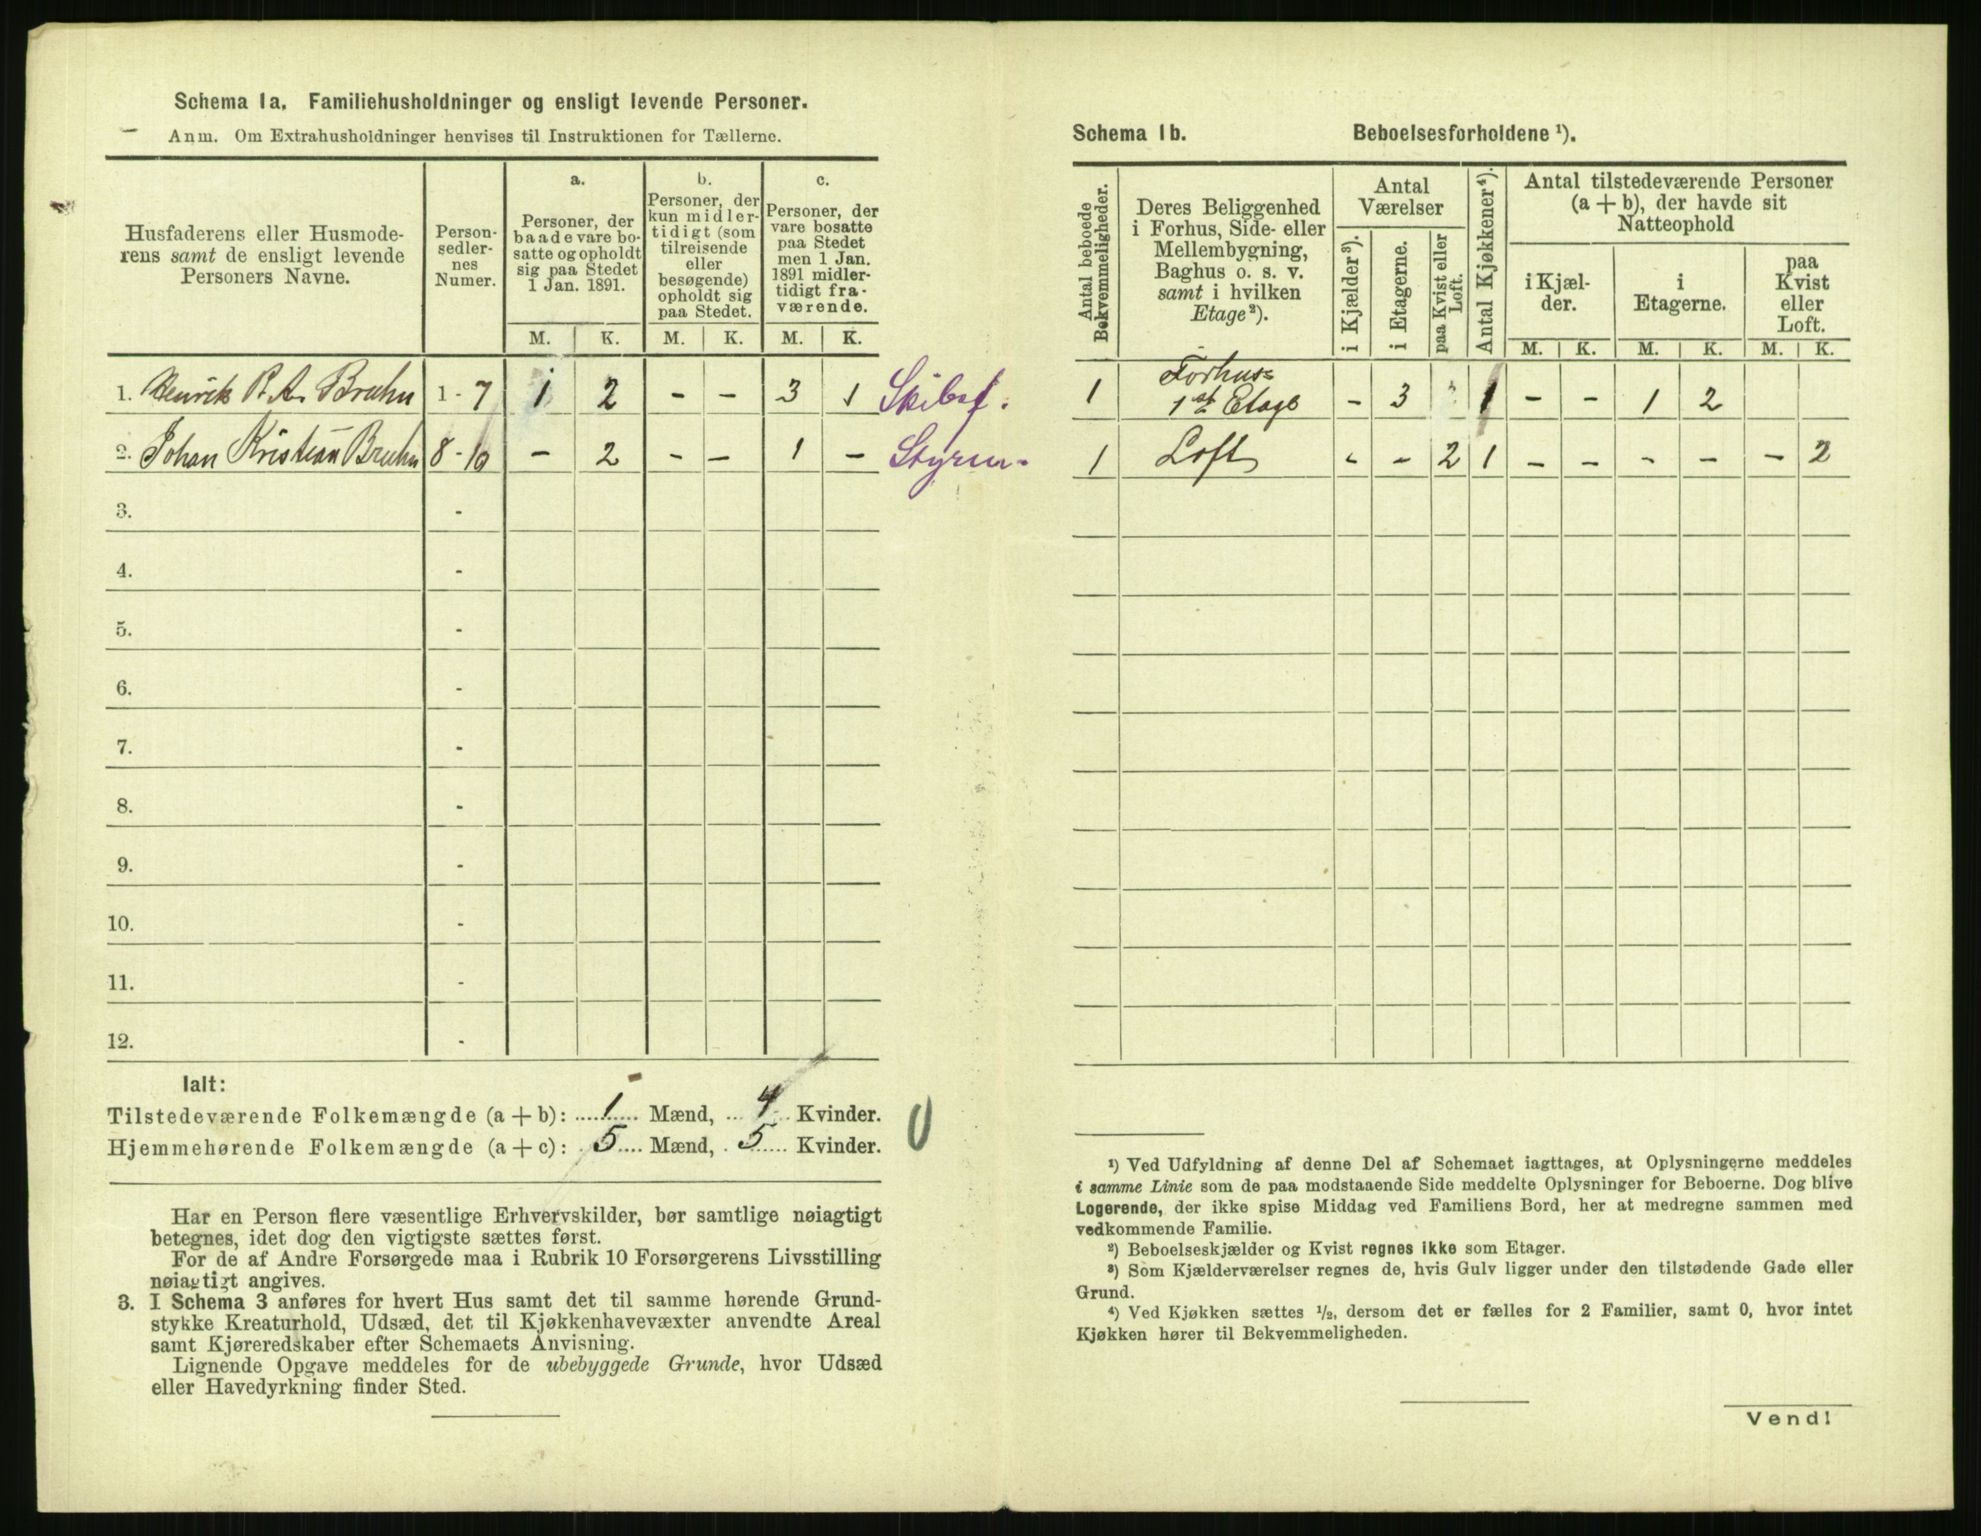 Schema 1a. Familiehusholdninger og ensligt levende Personer.
Anm. Om Extrahusholdninger henvises til Instruktionen for Tællerne.
Husfaderens eller Husmode-
rens samt de ensligt levende
Personers Navne.
Person-
sedler-
nes
Numer.
a.
Personer, der
baade vare bo-
satte og opholdt
sig paa Stedet
1 Jan. 1891.
b.
Personer, der
kun midler-
tidigt (som
tilreisende
eller
besøgende)
opholdt sig
paa Stedet.
c.
Personer, der
vare bosatte
paa Stedet
men 1 Jan.
1891 midler-
tidigt fra-
værende.
M. K. M. K. M. K.
1. Henrik P. A. Bruhn 1 - 7 1 2 - - 3 1 Skibsf.
2. Johan Kristian Bruhn 8 - 10 - 2 - - 1 - Styrm.
3. -
4. -
5. -
6. -
7. -
8. -
9. -
10. -
11. -
12. -
Ialt:
Tilstedeværende Folkemængde (a + b): 1 Mænd, 4 Kvinder.
Hjemmehørende Folkemængde (a + c): 5 Mænd, 5 Kvinder.
Har en Person flere væsentlige Erhvervskilder, bør samtlige nøiagtigt
betegnes, idet dog den vigtigste sættes først.
For de af Andre Forsørgede maa i Rubrik 10 Forsørgerens Livsstilling
nøiagtigt angives.
3. I Schema 3 anføres for hvert Hus samt det til samme hørende Grund-
stykke Kreaturhold, Udsæd, det til Kjøkkenhavevæxter anvendte Areal
samt Kjøreredskaber efter Schemaets Anvisning.
Lignende Opgave meddeles for de ubebyggede Grunde, hvor Udsæd
eller Havedyrkning finder Sted.
Schema 1b. Beboelsesforholdene ¹).
Antal beboede
Bekvemmeligheder.
Deres Beliggenhed
i Forhus, Side- eller
Mellembygning,
Baghus o. s. v.
samt i hvilken
Etage²).
Antal
Værelser
i Kjælder³).
i Etagerne.
paa Kvist eller
Loft.
Antal Kjøkkener⁴).
Antal tilstedeværende Personer
(a + b), der havde sit
Natteophold
i Kjæl-
der.
i
Etagerne.
paa
Kvist
eller
Loft.
M. K. M. K. M. K.
1 Forhus
1ste Etage - 3 1 - - 1 2
1 Loft - - 2 1 - - - - - 2
¹) Ved Udfyldning af denne Del af Schemaet iagttages, at Oplysningerne meddeles
i samme Linie som de paa modstaaende Side meddelte Oplysninger for Beboerne. Dog blive
Logerende, der ikke spise Middag ved Familiens Bord, her at medregne sammen med
vedkommende Familie.
²) Beboelseskjælder og Kvist regnes ikke som Etager.
³) Som Kjælderværelser regnes de, hvis Gulv ligger under den tilstødende Gade eller
Grund.
⁴) Ved Kjøkken sættes ½, dersom det er fælles for 2 Familier, samt 0, hvor intet
Kjøkken hører til Bekvemmeligheden.
Vend!